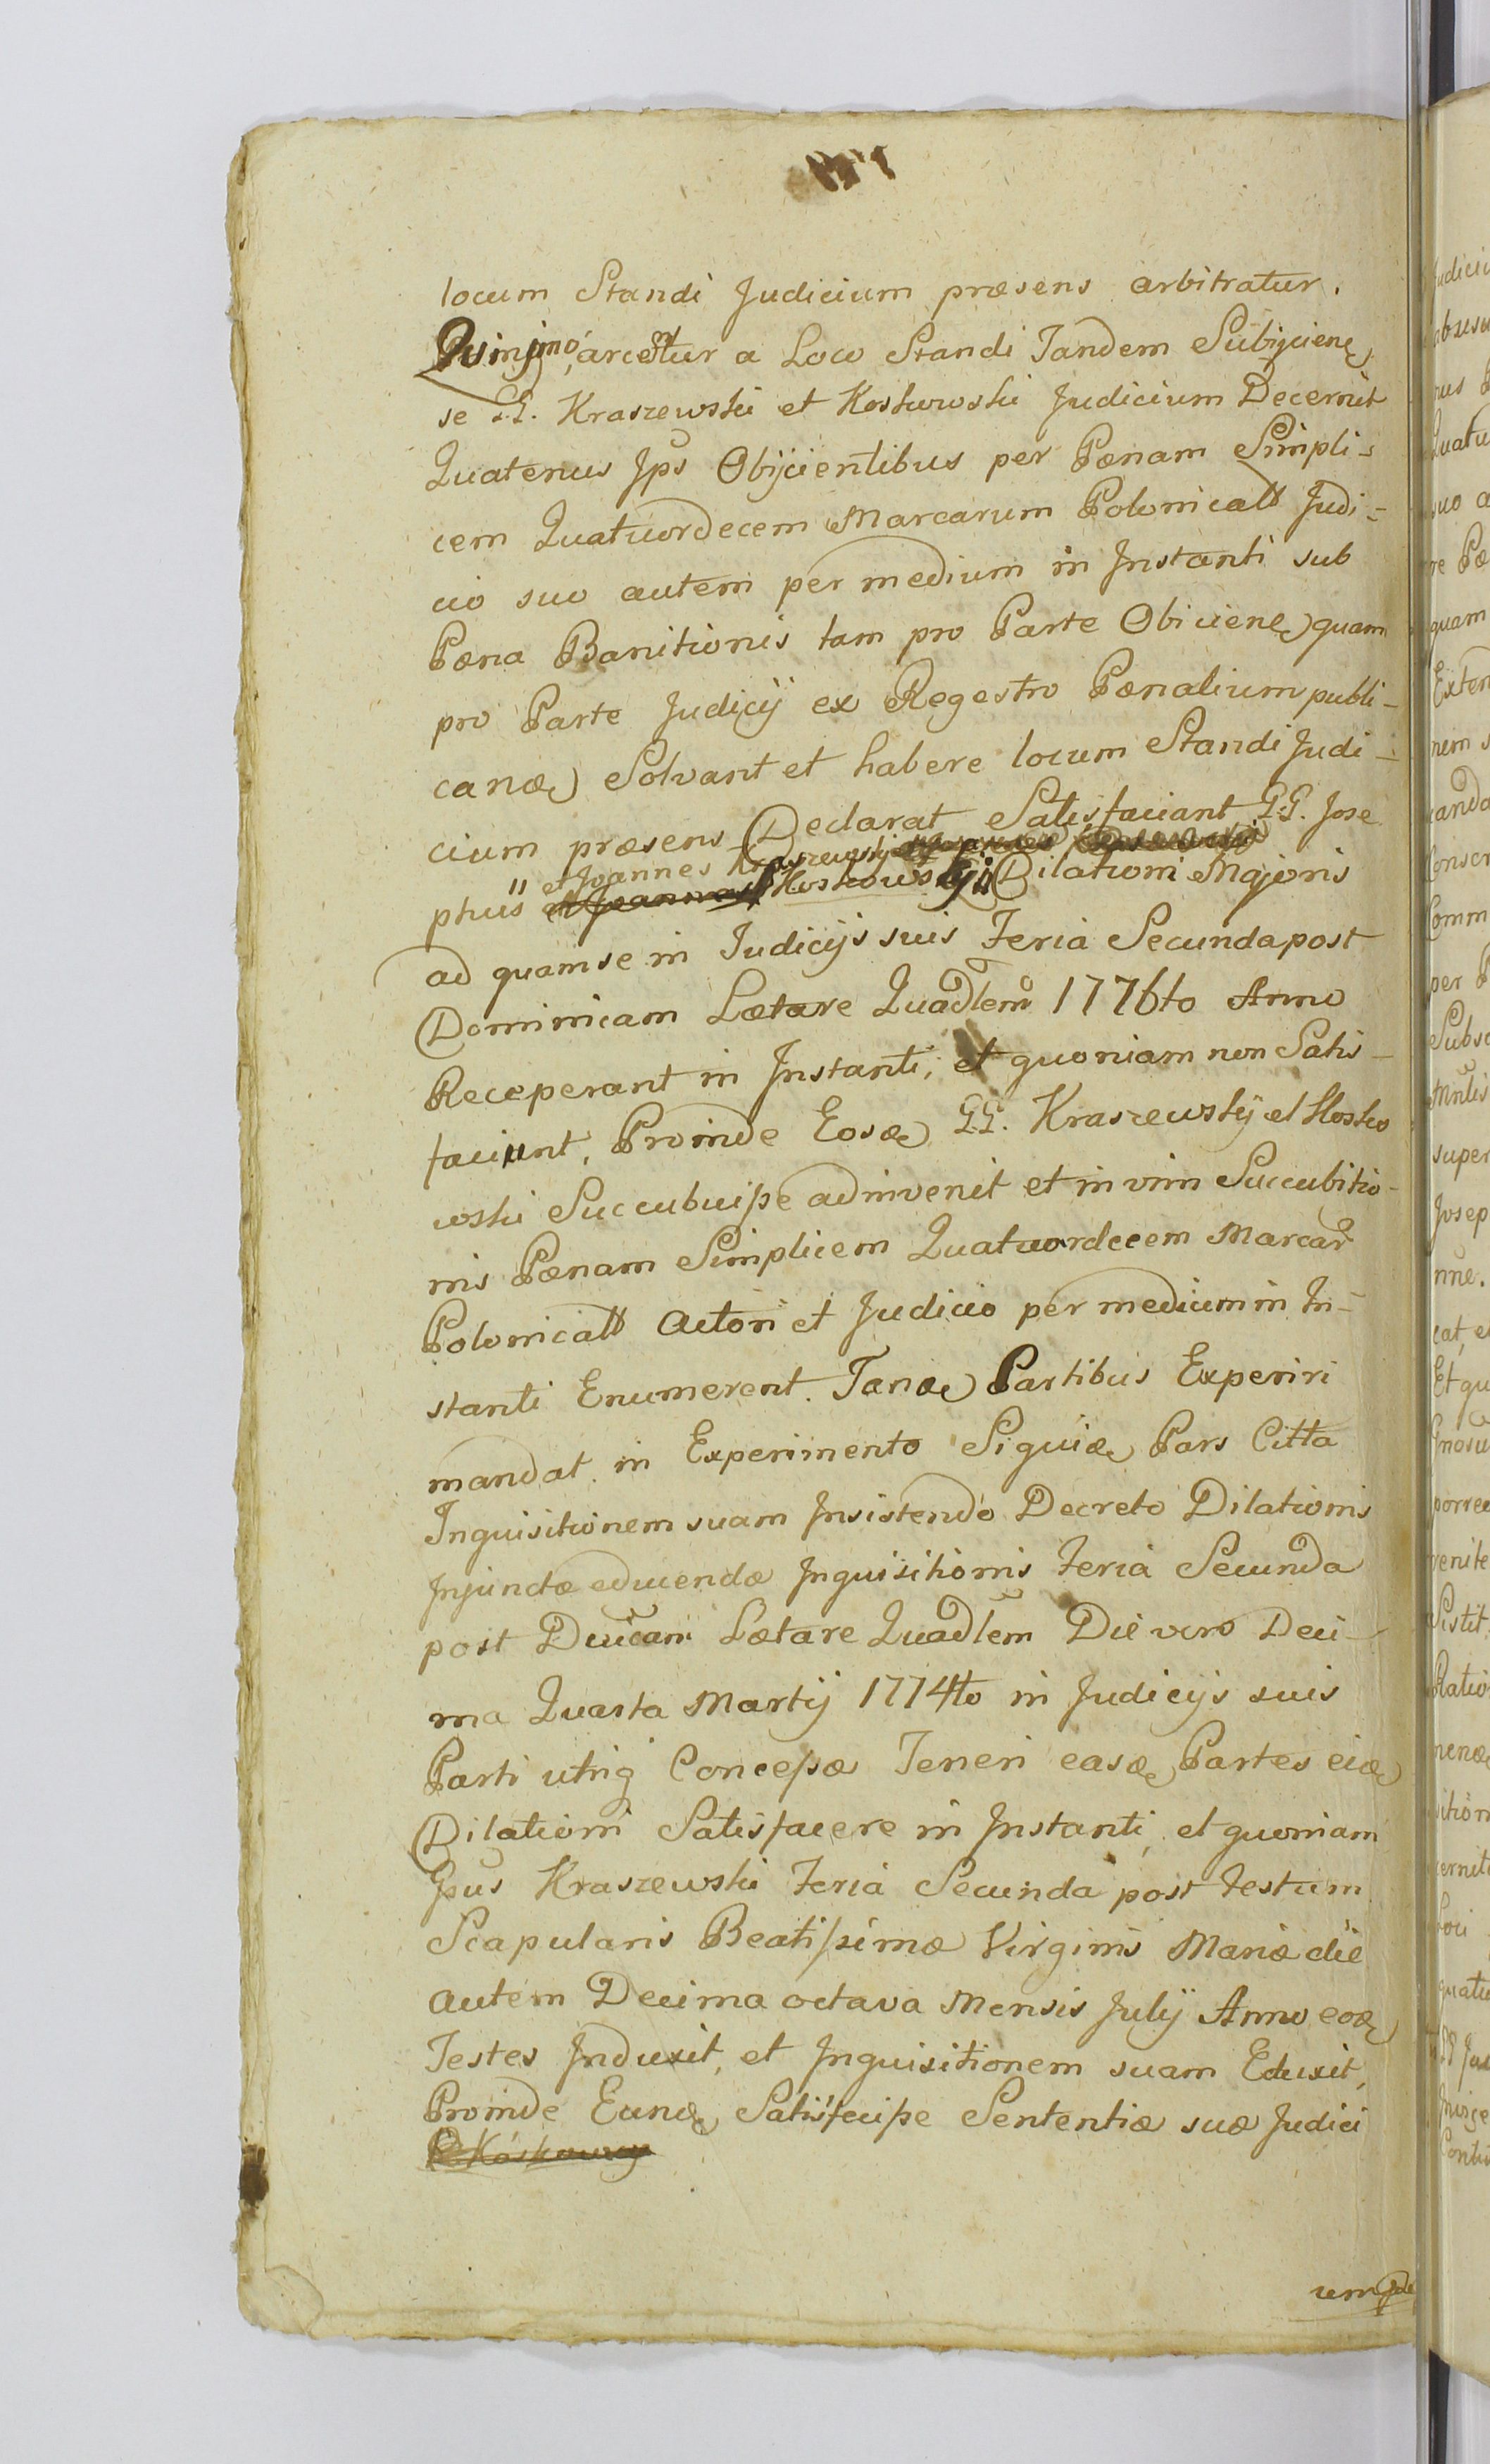 locum Standi Judicium præsens arbitratur.
Quinimo, arcentur a Loco Standi Tandem Subijcienę
se GG. Kraszewski et Koskowski Judicium Decernit
Quatenus Jps Obijcientibus per Pænam Simpli=
cem Quatuordecem Marcarum Polonicall Judi=
cio suo autem per medium in Instanti sub
Pæna Banitionis tam pro Parte Obiicienę quam
pro Parte Judicij ex Regestro Pænalium publi-
canæ Solvant et habere locum Standi Judi-
cium præsens Declarat Satisfaciant G.G. Jose
et Joannes Kraszewskij
phus Koskowskij Dilationi Majoris
ad quam se in Judicijs suis Feria Secunda post
Dominicam Lætare Quadlem 1776to Anno
Receperant in Instanti, et quoniam non Satis-
faciunt, Proinde Eosdæ GG. Kraszewskij et Kosko
wski Succubuisse adinvenit et in vim Succubitio-
nis Pænam Simplicem Quatuordecem Marcar
Polonicall Actori et Judicio per medium in In=
stanti Enumerent. Tanæ Partibus Experiri
mandat. in Experimento Siquiæ Pars Citta
Inquisitionem suam Insistendo Decreto Dilationis
Injunctæ educendæ Inquisitionis Feria Secunda
post Dnicam Lætare Quadlem Die vero Deci-
ma Quarta Martij 1774to in Judicijs suis
Parti utriq Concessæ Teneri easæ Partes eiæ
Dilationi Satisfacere in Instanti, et quoniam
Gsus Kraszewski Feria Secunda post Festum
Scapularis Beatissimæ Virginis Mariæ die
autem Decima octava Mensis Julij Anno eoæ
Testes Induxit, et Inquisitionem suam Eduxit,
Proinde Eunæ Satisfecisse Sententiæ suæ Judici
um